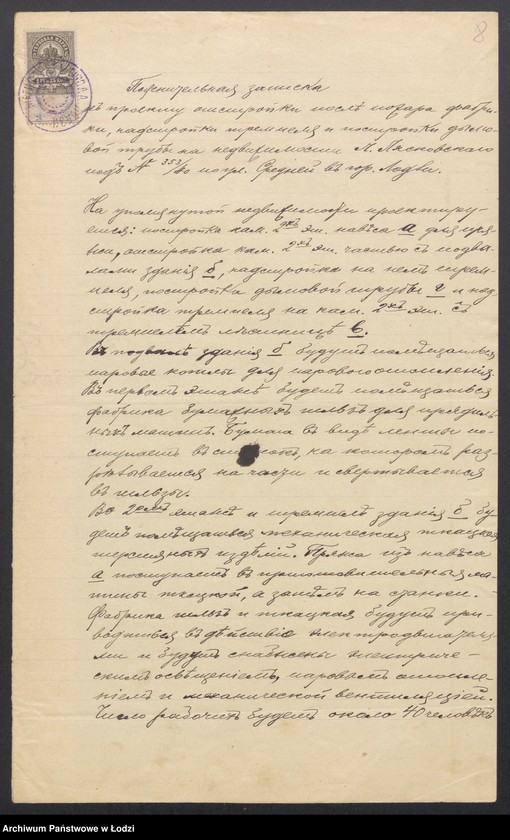 8
Пояснительная записка
къ проекту отстройки послѣ пожара фабри-
ки, надстройки тремпеля и постройки дымо-
вой трубы на недвижимости Л. Лясковскаго
подъ № 353/80 по ул. Средней въ гор. Лодзи.
На упомянутой недвижимости проектиру-
ется: постройка кам. 2хъ эт. навѣса а для пря-
жи, отстройка кам. 2хъ эт. частью съ подва-
лами зданія б, надстройка на немъ тремпе-
ля, постройка дымовой трубы г и над
стройка тремпеля на кам. 2хъ эт. съ
тремпелемъ лѣстницѣ в.
Въ подвалѣ зданія б будутъ помѣщаться
паровые котлы для парового отопленія.
Въ первомъ этажѣ будетъ помѣщаться
фабрика бумажныхъ гильзъ для прядиль
ныхъ машинъ. Бумага въ видѣ ленты по-
ступаетъ въ на которомъ раз-
рѣзывается на части и свертывается
въ гильзы.
Во 2омъ этажѣ и тремпелѣ зданія б бу-
детъ помѣщаться механическая ткацкая
шерстяныхъ издѣлій. Пряжа изъ навѣса
а поступаетъ въ приготовительныя ма-
шины ткацкой, а затѣмъ на станки.
Фабрика гильзъ и ткацкая будутъ при-
водиться въ дѣйствіе электродвигателя-
ми и будутъ снабжены электриче-
скимъ освѣщеніемъ, паровымъ отопле-
ніемъ и механической вентиляціей.
Число рабочихъ будетъ около 40 человѣкъ
Archiwum Państwowe w Łodzi